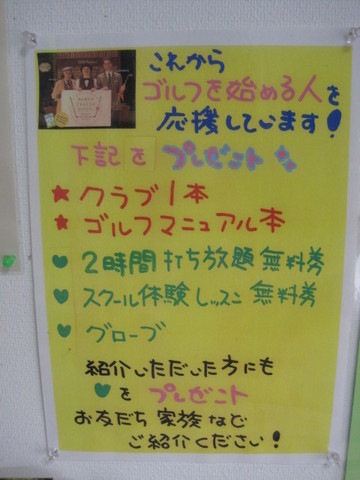 これから
ゴルフを始める人を
応援しています!
下記を プレゼント
★ クラブ1本
★ ゴルフマニュアル本
♥ 2時間打ち放題 無料券
♥ スクール体験レッスン 無料券
♥ グローブ
紹介しただいた方にも
♥を プレゼント
お友だち 家族など
ご紹介ください!